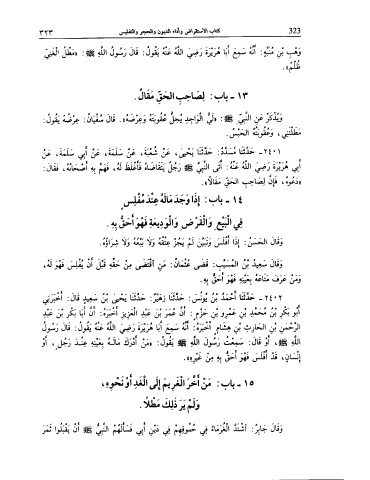 323 كتاب الاستقراض وأداء الديون والحجر والتفليس ٣٢٣
وَهْبِ بْنِ مُنَبِّهٍ: أَنَّهُ سَمِعَ أَبَا هُرَيْرَةَ رَضِيَ اللَّهُ عَنْهُ يَقُولُ: قَالَ رَسُولُ اللَّهِ ﷺ: «مَطْلُ الْغَنِيِّ
ظُلْمٌ».
١٣ - باب: لِصَاحِبِ الحَقِّ مَقَالٌ.
وَيُذْكَرُ عَنِ النَّبِيِّ ﷺ: «لَيُّ الْوَاجِدِ يُحِلُّ عُقُوبَتَهُ وَعِرْضَهُ». قَالَ سُفْيَانُ: عِرْضُهُ يَقُولُ:
مَطَلْتَنِي، وَعُقُوبَتُهُ الحَبْسُ.
٢٤٠١ - حَدَّثَنَا مُسَدَّدٌ: حَدَّثَنَا يَحْيَى، عَنْ شُعْبَةَ، عَنْ سَلَمَةَ، عَنْ أَبِي سَلَمَةَ، عَنْ
أَبِي هُرَيْرَةَ رَضِيَ اللَّهُ عَنْهُ: أَتَى النَّبِيَّ ﷺ رَجُلٌ يَتَقَاضَاهُ فَأَغْلَظَ لَهُ، فَهَمَّ بِهِ أَصْحَابُهُ، فَقَالَ:
«دَعُوهُ، فَإِنَّ لِصَاحِبِ الحَقِّ مَقَالًا».
١٤ - باب: إِذَا وَجَدَ مَالَهُ عِنْدَ مُفْلِسٍ
فِي الْبَيْعِ وَالْقَرْضِ وَالْوَدِيعَةِ فَهُوَ أَحَقُّ بِهِ.
وَقَالَ الحَسَنُ: إِذَا أَفْلَسَ وَتَبَيَّنَ لَمْ يَجُزْ عِتْقُهُ وَلَا بَيْعُهُ وَلَا شِرَاؤُهُ.
وَقَالَ سَعِيدُ بْنُ المُسَيَّبِ: قَضَى عُثْمَانُ: مَنِ اقْتَضَى مِنْ حَقِّهِ قَبْلَ أَنْ يُفْلِسَ فَهُوَ لَهُ،
وَمَنْ عَرَفَ مَتَاعَهُ بِعَيْنِهِ فَهُوَ أَحَقُّ بِهِ.
٢٤٠٢ - حَدَّثَنَا أَحْمَدُ بْنُ يُونُسَ: حَدَّثَنَا زُهَيْرٌ: حَدَّثَنَا يَحْيَى بْنُ سَعِيدٍ قَالَ: أَخْبَرَنِي
أَبُو بَكْرِ بْنُ مُحَمَّدِ بْنِ عَمْرِو بْنِ حَزْمٍ: أَنَّ عُمَرَ بْنَ عَبْدِ الْعَزِيزِ أَخْبَرَهُ: أَنَّ أَبَا بَكْرِ بْنَ عَبْدِ
الرَّحْمَنِ بْنِ الحَارِثِ بْنِ هِشَامٍ أَخْبَرَهُ: أَنَّهُ سَمِعَ أَبَا هُرَيْرَةَ رَضِيَ اللَّهُ عَنْهُ يَقُولُ: قَالَ رَسُولُ
اللَّهِ ﷺ، أَوْ قَالَ: سَمِعْتُ رَسُولَ اللَّهِ ﷺ يَقُولُ: «مَنْ أَدْرَكَ مَالَهُ بِعَيْنِهِ عِنْدَ رَجُلٍ، أَوْ
إِنْسَانٍ، قَدْ أَفْلَسَ فَهُوَ أَحَقُّ بِهِ مِنْ غَيْرِهِ».
١٥ - باب: مَنْ أَخَّرَ الْغَرِيمَ إِلَى الْغَدِ أَوْ نَحْوِهِ،
وَلَمْ يَرَ ذَلِكَ مَطْلًا.
وَقَالَ جَابِرٌ: اشْتَدَّ الْغُرَمَاءُ فِي حُقُوقِهِمْ فِي دَيْنِ أَبِي فَسَأَلَهُمُ النَّبِيُّ ﷺ أَنْ يَقْبَلُوا ثَمَرَ